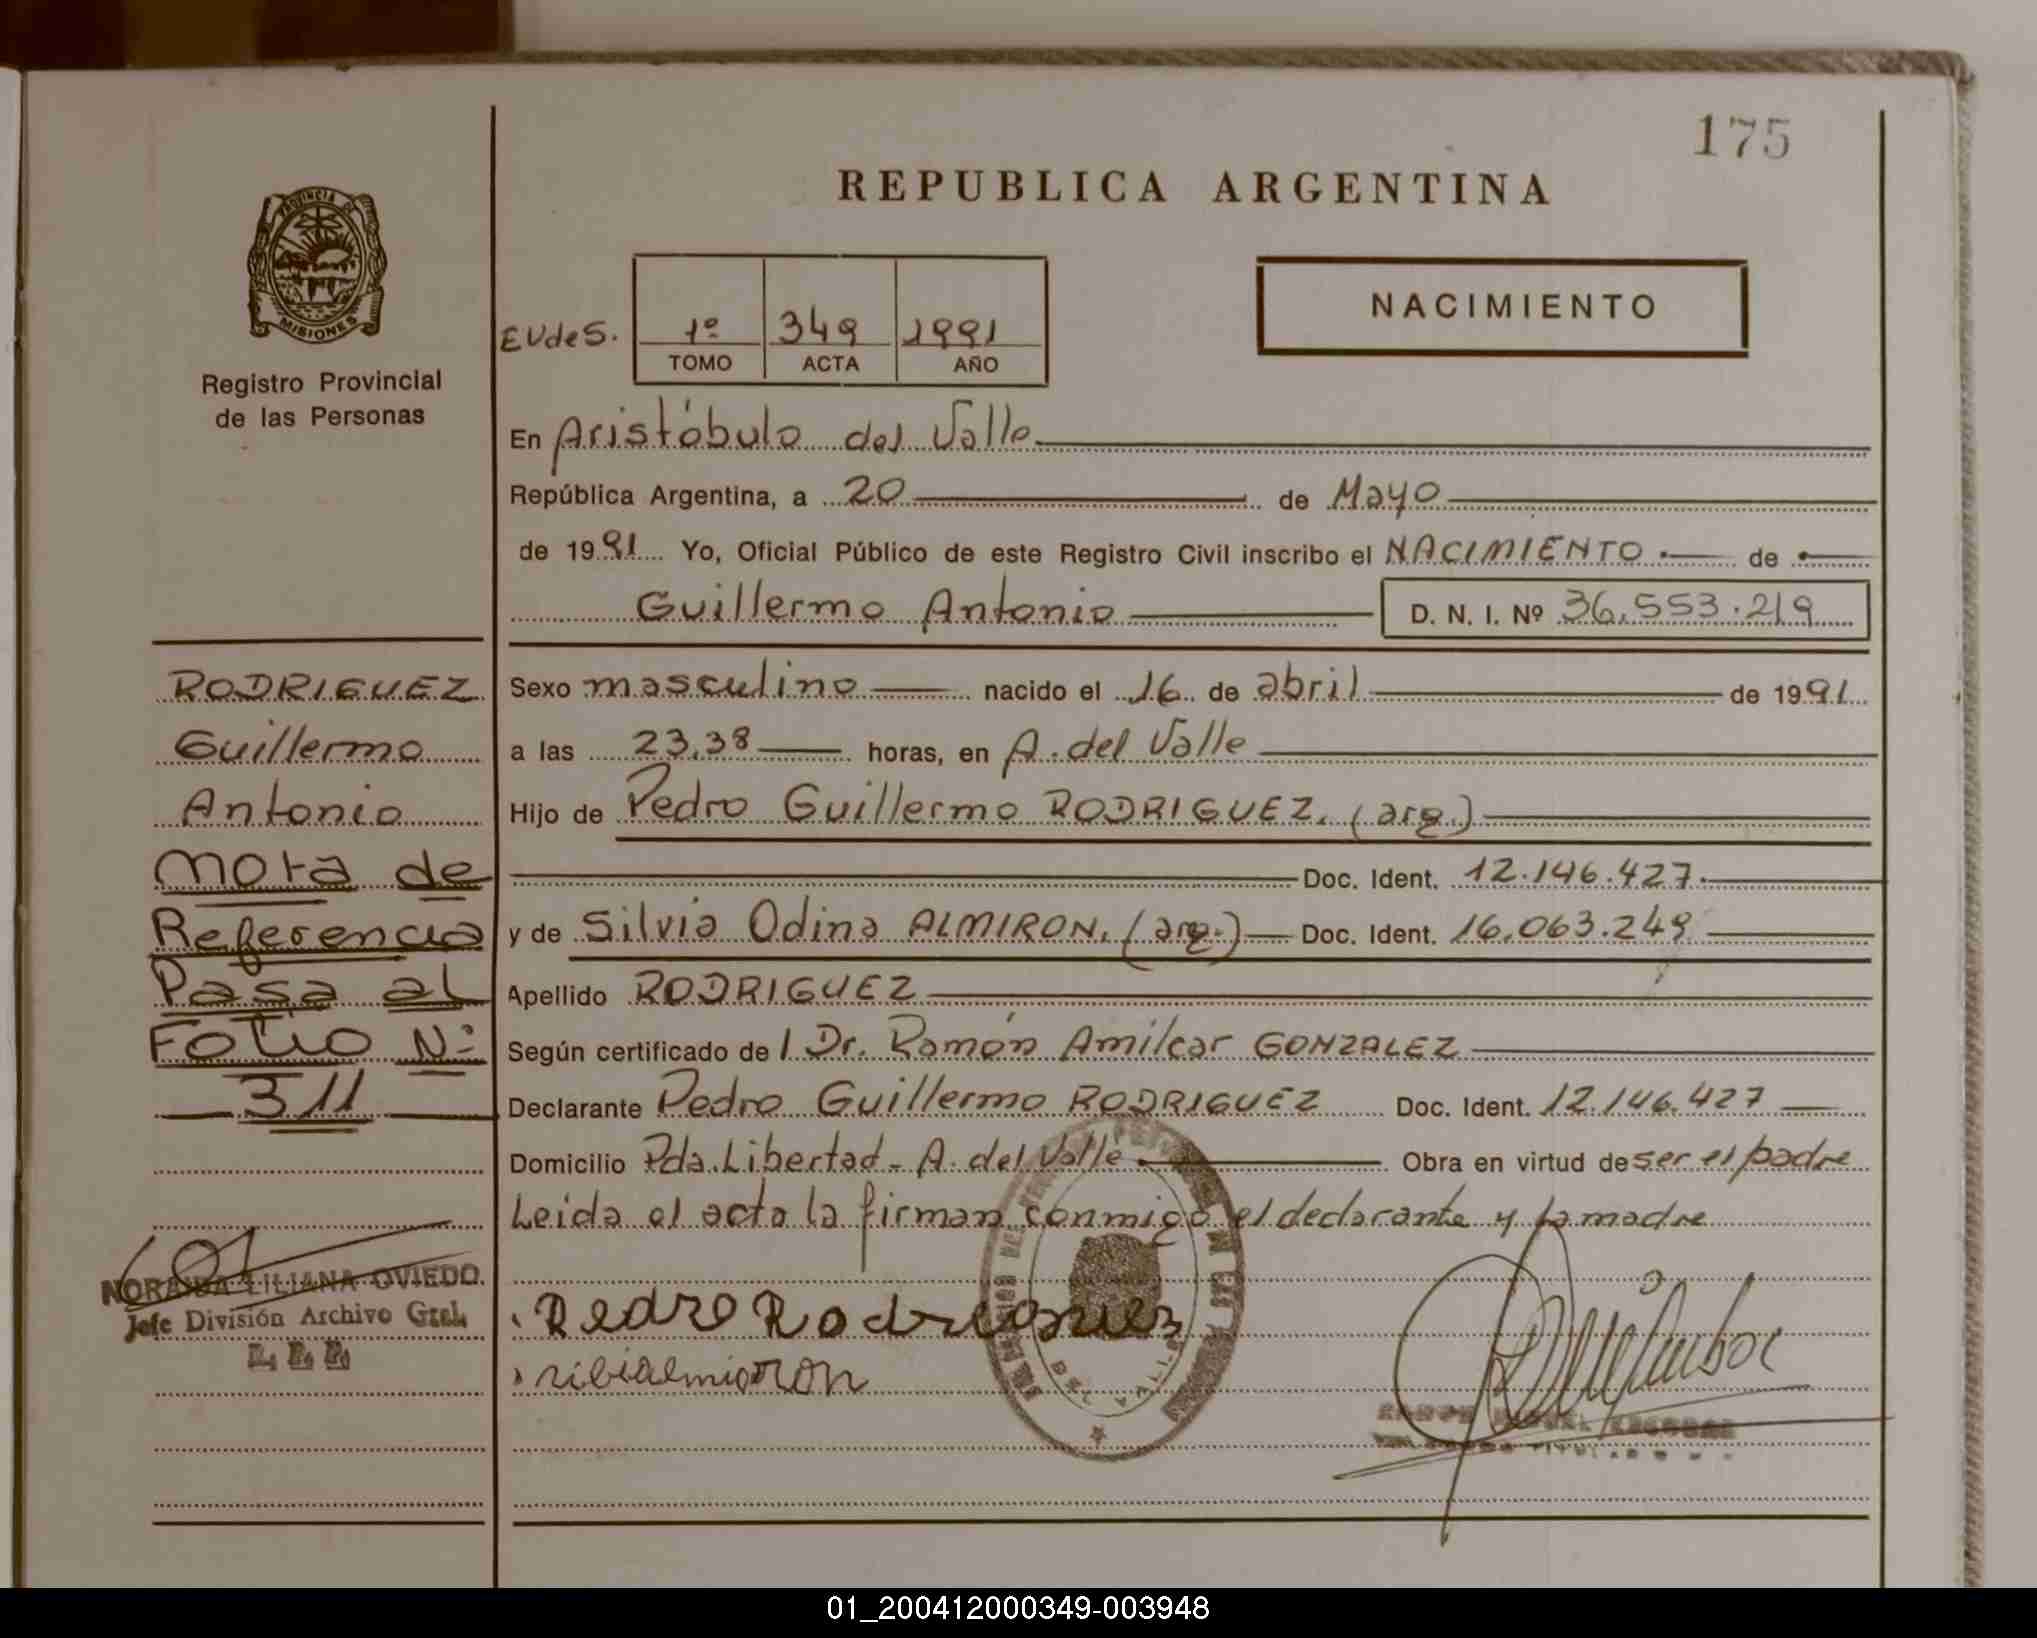 175
REPUBLICA ARGENTINA
PROVINCIA DE
MISIONES
Registro Provincial
de las Personas
NACIMIENTO
EVdeS. 1º 349 1991
TOMO ACTA AÑO
En Aristóbulo del Valle
República Argentina, a 20 de Mayo
de 1991 Yo, Oficial Público de este Registro Civil inscribo el NACIMIENTO de
Guillermo Antonio D. N. I. Nº 36.553.219
Sexo masculino nacido el 16 de abril de 1991
a las 23,38 horas, en A. del Valle
Hijo de Pedro Guillermo RODRIGUEZ. (arg.)
Doc. Ident. 12.146.427.
y de Silvia Odina ALMIRON. (arg.) Doc. Ident. 16.063.249
Apellido RODRIGUEZ
Según certificado de l Dr. Ramón Amilcar GONZALEZ
Declarante Pedro Guillermo RODRIGUEZ Doc. Ident. 12.146.427
Domicilio Pda. Libertad - A. del Valle Obra en virtud de ser el padre
Leida el acta la firman conmigo el declarante y la madre
Pedro Rodriguez
RODRIGUEZ
Guillermo
Antonio
Nota de
Referencia
Pasa al
Folio Nº
311
NORAIDA LILIANA OVIEDO
Jefe División Archivo Gral.
DEL VALLE
01_200412000349-003948